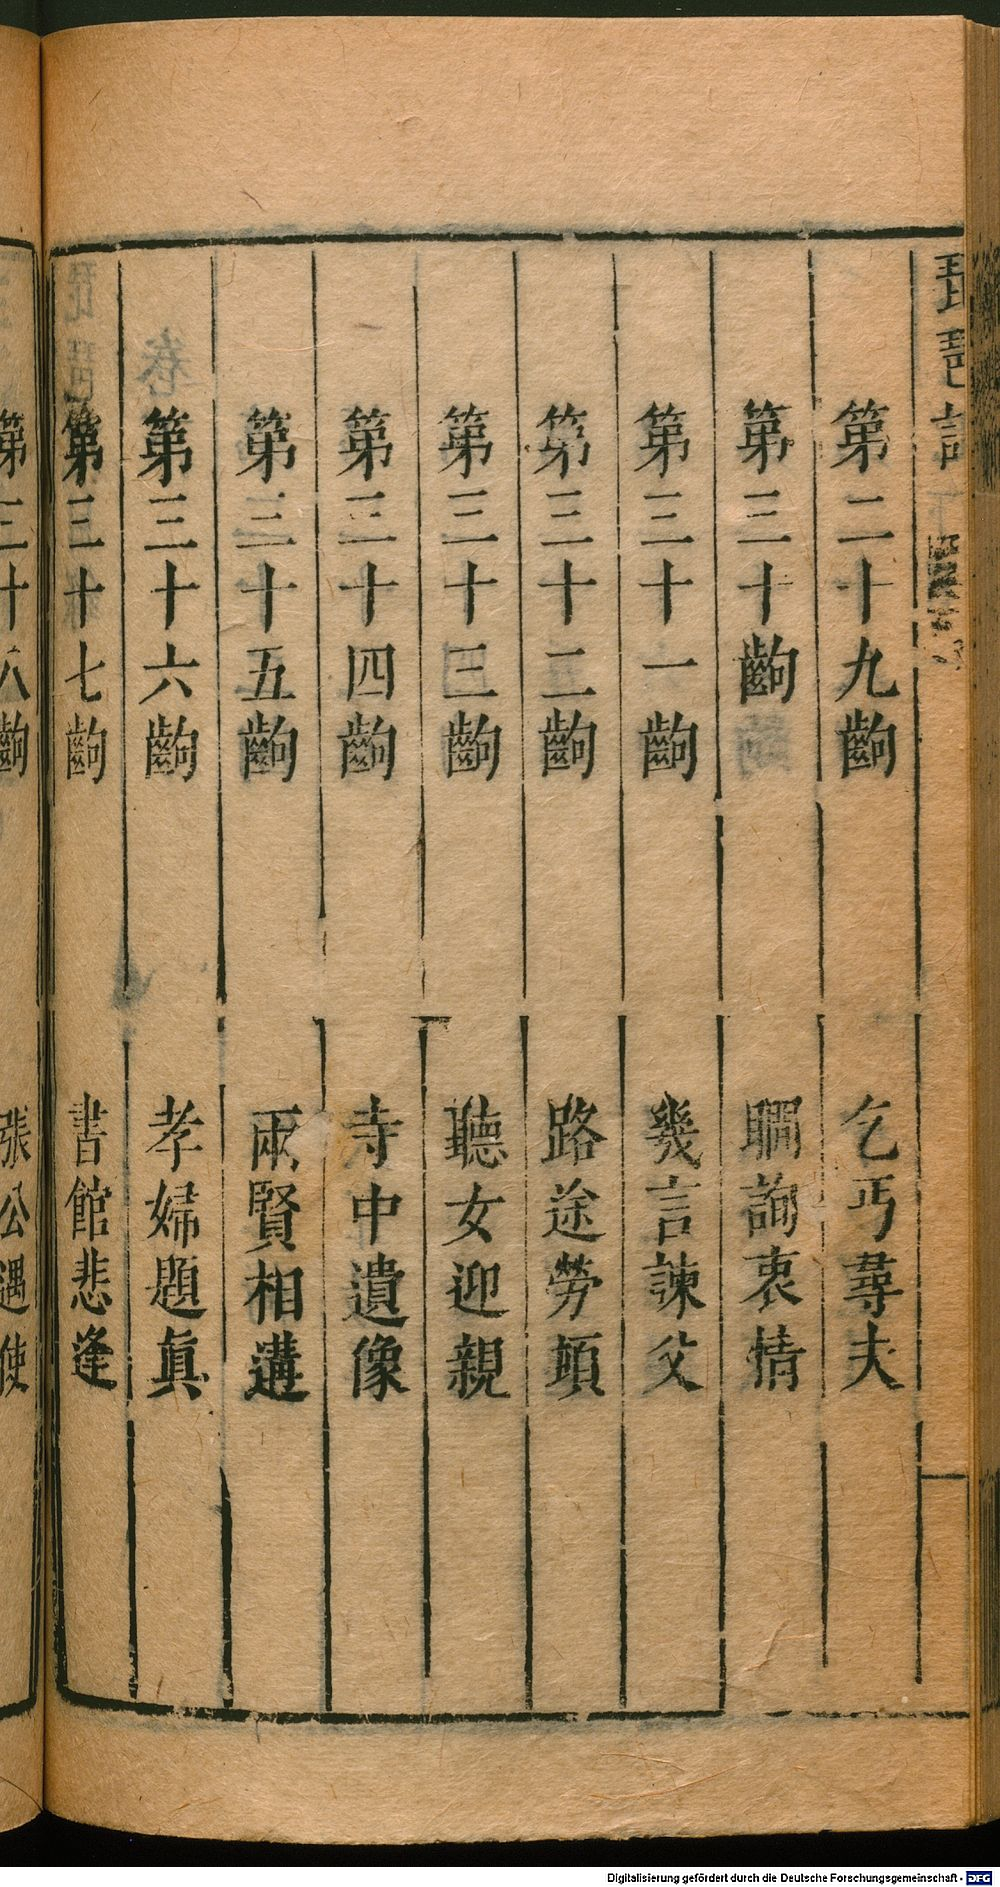 第二十九齣 乞丐尋夫
第三十齣 瞯詢衷情
第三十一齣 幾言諫父
第三十二齣 路途勞頓
第三十三齣 聽女迎親
第三十四齣 寺中遺像
第三十五齣 兩賢相遘
第三十六齣 孝婦題眞
第三十七齣 書館悲逢
第三十八齣 張公遇使
Digitalisierung gefördert durch die Deutsche Forschungsgemeinschaft - DFG